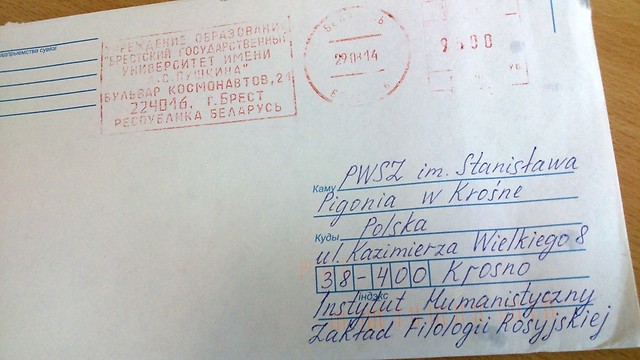 прыемства сувязі
УЧРЕЖДЕНИЕ ОБРАЗОВАНИЯ
"БРЕСТСКИЙ ГОСУДАРСТВЕННЫЙ
УНИВЕРСИТЕТ ИМЕНИ
А.С.ПУШКИНА"
БУЛЬВАР КОСМОНАВТОВ, 21
224016. г. БРЕСТ
РЕСПУБЛИКА БЕЛАРУСЬ
29.01.14
PWSZ im. Stanisława
Каму
Pigonia w Krośne
Polska
Куды
ul. Kazimierza Wielkiego 8
38-400 Krosno
Індэкс
Instytut Humanistyczny
Zakład Filologii Rosyjskiej